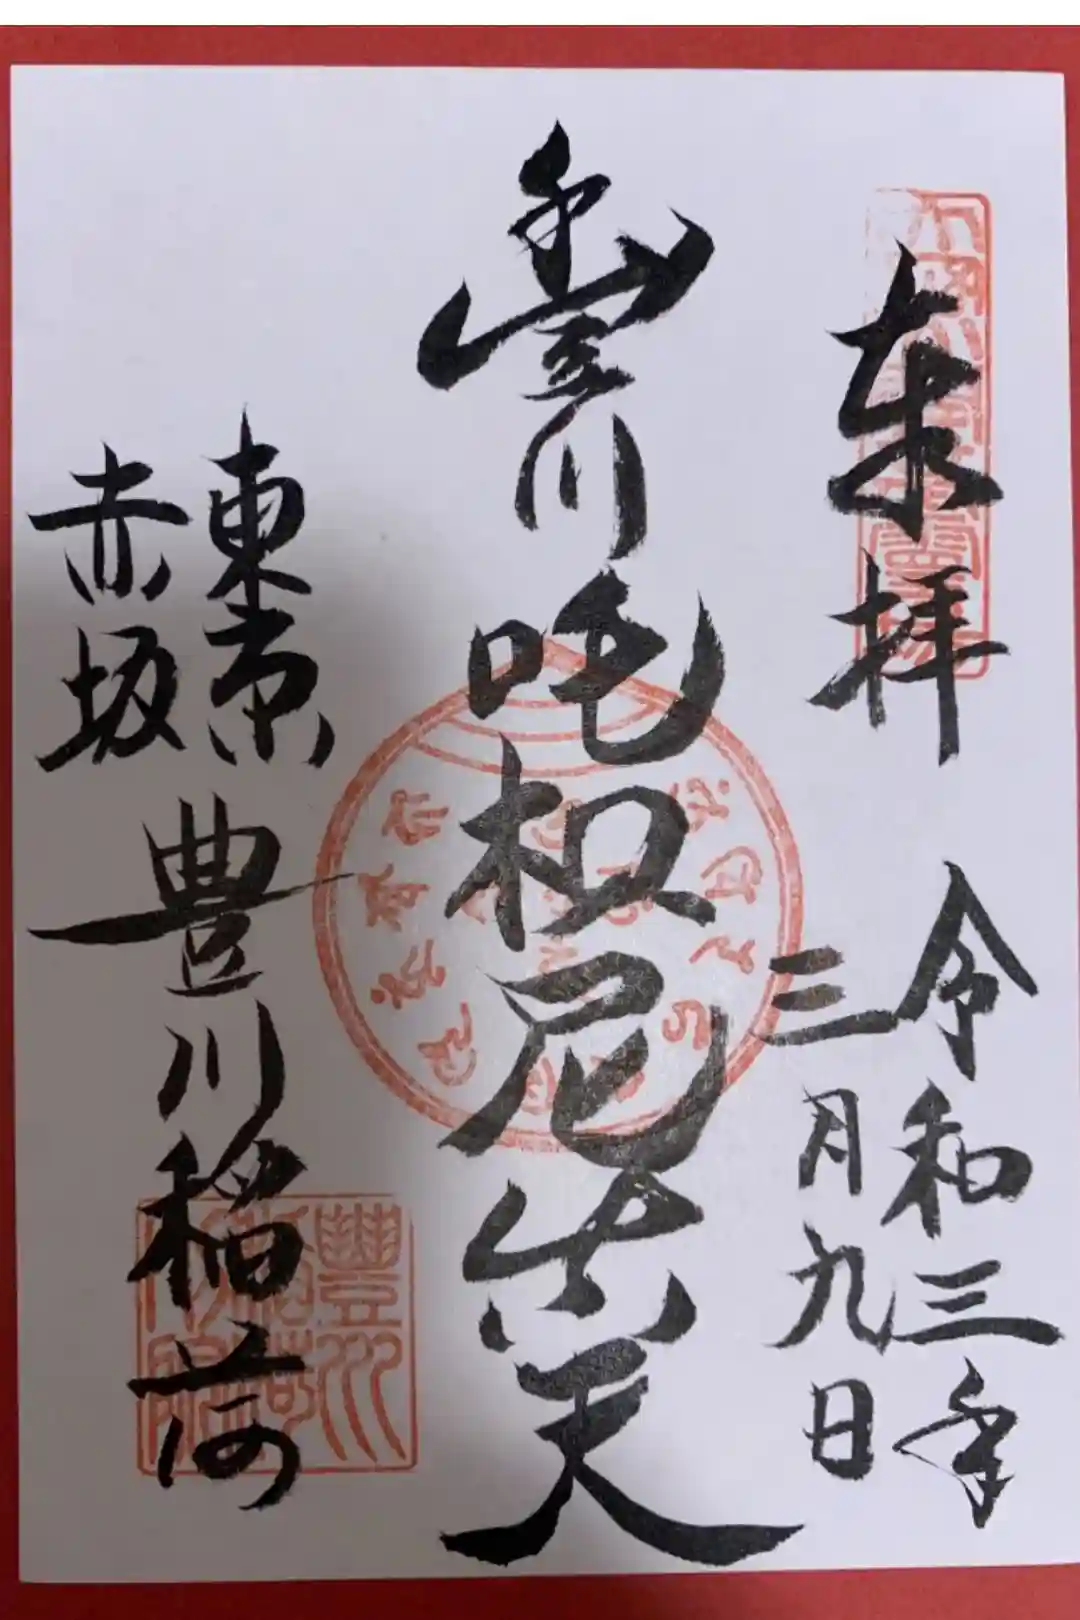 奉拝
令和三年
三月九日
豊川吒枳尼真天
東京
赤坂
豊川稲荷